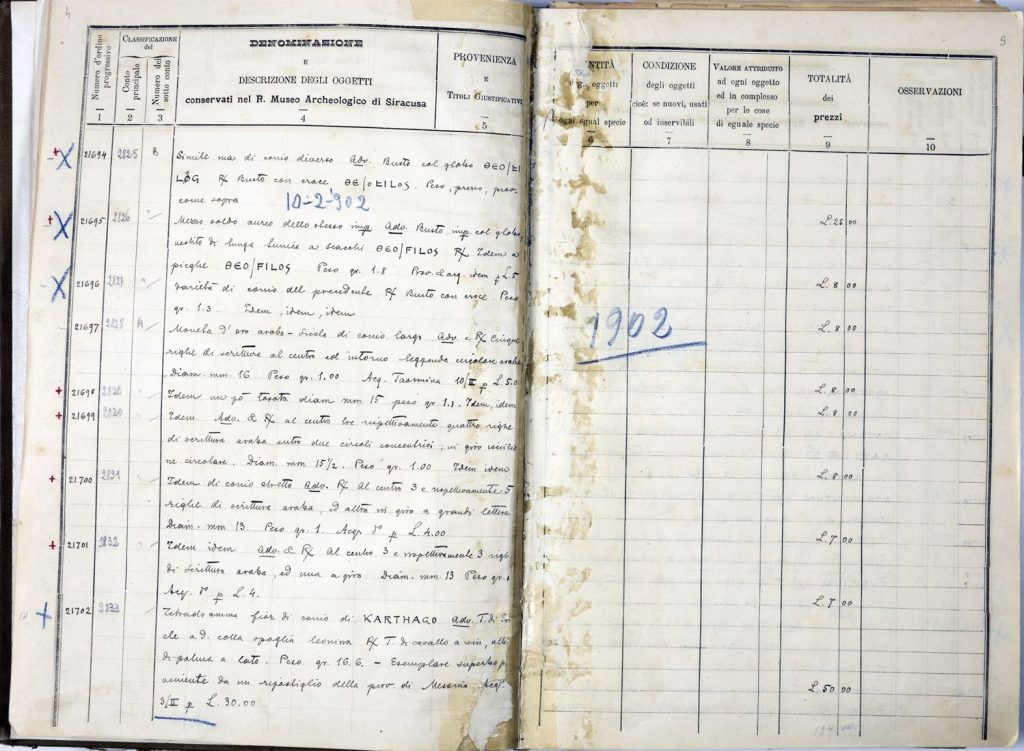 4
Numero d'ordine progressivo
CLASSIFICAZIONE
del
Conto principale
Numero del sotto conto
DENOMINAZIONE
E
DESCRIZIONE DEGLI OGGETTI
conservati nel R. Museo Archeologico di Siracusa
PROVENIENZA
E
TITOLI GIUSTIFICATIVI
1 2 3 4 5
21694 2825 B Simile ma di conio diverso Adv. Busto col globo ΘEO/FI
LOG R/ Busto con croce ΘE/OFILOS. Peso, prezzo, prov.
come sopra
10-2-902
21695 2826 " Mezzo soldo aureo dello stesso imp. Adv. Busto imp. col globo,
vestito di lunga tunica a scacchi ΘEO/FILOS R/ Idem a
pieghe ΘEO/FILOS Peso gr. 1.8 Prov. & acq. idem p L. 5
21696 2827 " Varietà di conio del precedente R/ Busto con croce. Peso
gr. 1.3. Idem, idem, idem
21697 2828 A Moneta d'oro arabo-sicula di conio largo Adv. e R/ Cinque
righe di scrittura al centro ed intorno leggenda circolare araba
Diam. mm. 16 Peso gr. 1.00 Acq. Taormina 10/II p L. 5.0
21698 2829 " Idem un po' tosata diam mm. 15 peso gr. 1.1. Idem, idem
21699 2830 " Idem Adv. & R/ al centro tre rispettivamente quattro righe
di scrittura araba entro due circoli concentrici; in giro iscrizio
ne circolare. Diam. mm. 15 1/2. Peso gr. 1.00 Idem idem
21700 2831 " Idem di conio stretto Adv. R/ Al centro 3 e rispettivamente 5
righe di scrittura araba, ed altra in giro a grandi lettere
Diam. mm. 13. Peso gr. 1. Acq. p L. 4.00
21701 2832 " Idem idem Adv. & R/ Al centro 3 e rispettivamente 3 righe
di scrittura araba, ed una a giro Diam. mm. 13 Peso gr.
Acq. p L. 4.
21702 2833 Tetradramma fior di conio di KARTHAGO Adv. T. di Er
cle a d. colla spoglia leonina R/ T. di cavallo a sin, albe
di palma a lato. Peso gr. 16.6. - Esemplare superbo p
veniente da un ripostiglio della prov. di Messina Acq.
3/II p L. 30.00
5
per
ogni egual specie
CONDIZIONE
degli oggetti
cioè: se nuovi, usati
od inservibili
VALORE ATTRIBUITO
ad ogni oggetto
od in complesso
per le cose
di eguale specie
TOTALITÀ
dei
prezzi
OSSERVAZIONI
6 7 8 9 10
L. 25 00
L. 8 00
1902
L. 8 00
L. 8 00
L. 8 00
L. 8 00
L. 7 00
L. 7 00
L. 50 00